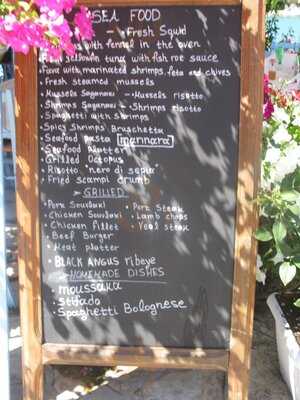 SEA FOOD
- Fresh Squid
with fennel in the oven
yellowfin tuna with fish roe sauce
• Fava with marinated shrimps, feta and chives
• Fresh steamed mussels
• Mussels Saganaki - Mussels risotto
• Shrimps Saganaki - Shrimps risotto
• Spaghetti with shrimps
• Spicy Shrimps Bruschetta
• Seafood pasta marinara
• Seafood platter
• Grilled Octopus
• Risotto "nero di sepia"
• Fried scampi crumb
- GRILLED -
• Pork Souvlaki • Pork Steak
• Chicken Souvlaki • Lamb chops
• Chicken fillet • Veal steak
• Beef Burger
• Meat platter
• BLACK ANGUS ribeye
- HOMEMADE DISHES
• moussaka
• stifado
• Spaghetti Bolognese